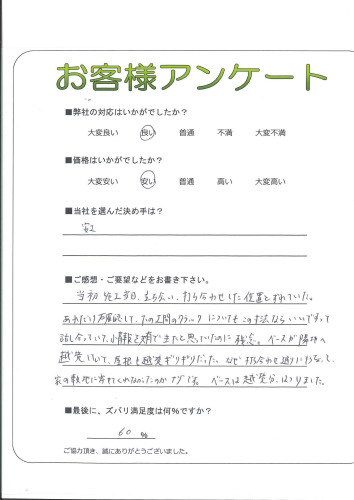 お客様アンケート
■弊社の対応はいかがでしたか？
大変良い 良い 普通 不満 大変不満
■価格はいかがでしたか？
大変安い 安い 普通 高い 大変高い
■当社を選んだ決め手は？
■ご感想・ご要望などをお書き下さい。
当初 施工当日、立ち合い、打ち合わせした位置とずれていた。
あれだけ確認して、土間のクラックについてもこの寸法ならいいですって
話し合っていて、小傷も補修できたと思っていたのに残念。ベースが隣地へ
越境していて、屋根も越境ギリギリだった。なぜ打ち合わせ通りに
家の敷地に
ベースは越境分、はつりました。
■最後に、ズバリ満足度は何%ですか？
60 %
ご協力頂き、誠にありがとうございました。